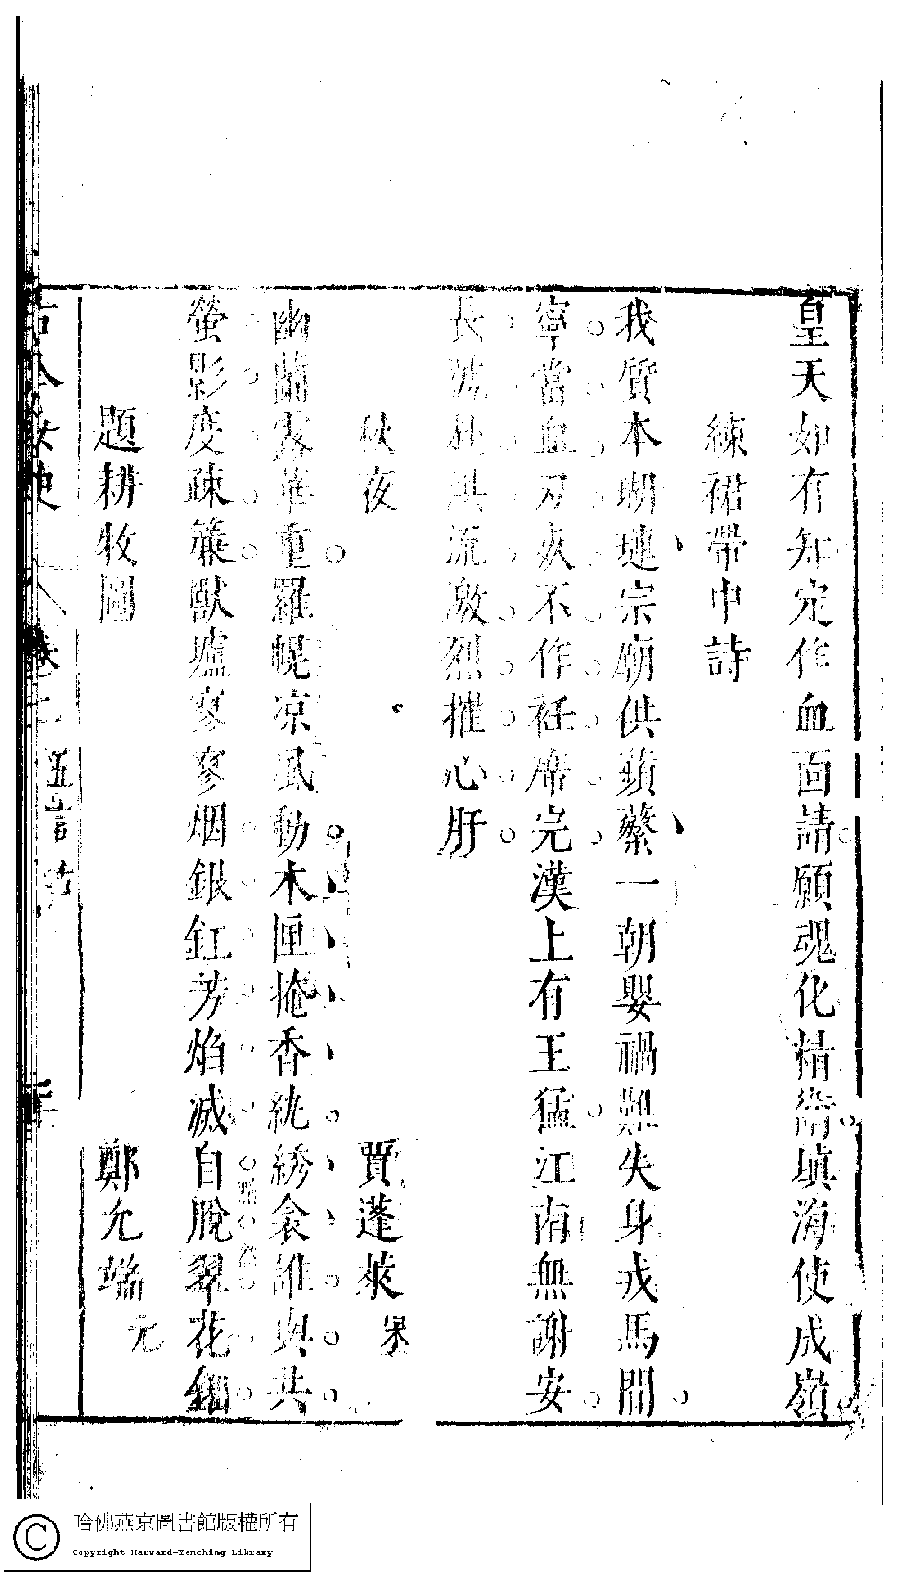 皇天如有知定作血面請願魂化精衛填海使成嶺
練裙帶中詩
我質本瑚璉宗廟供蘋蘩一朝嬰禍難失身戎馬間
寧當血刃死不作衽席完漢上有王猛江南無謝安
長號赴洪流激烈摧心肝
秋夜　賈蓬萊　宋
幽蘭露華重羅幌凉風動木匣掩香紈綉衾誰與共
螢影度疎簾獸爐寥寥烟銀釭芳焰滅自脫翠花鈿
題耕牧圖　鄭允端　元
古今女史　卷二　五言古
哈佛燕京圖書館版權所有
Copyright Harvard-Yenching Library